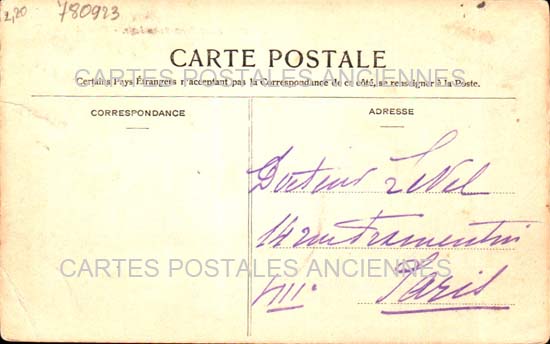 2,20 780923
CARTE POSTALE
CARTES POSTALES ANCIENNES
Certains Pays Étrangers n'acceptant pas la Correspondance de ce côté, se renseigner à la Poste.
CORRESPONDANCE
ADRESSE
Docteur
14 rue
CARTES POSTALES ANCIENNES
VIIIe Paris